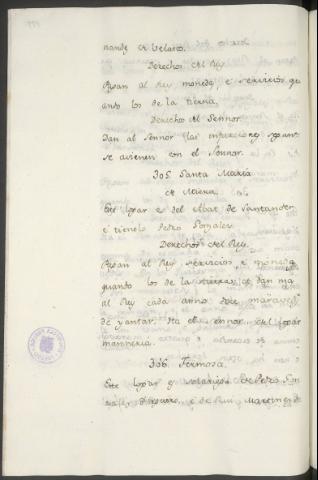 nande de Velasco.
Derechos del Rey
Pagan al Rey moneda, e servicios qu
anto los de la tierra.
Derechos del Sennor
Dan al Sennor las infurciones segunt
se avienen con el Sennor.
305 Santa Maria
de
Este logar e del Abat de Santander,
e tienelo Pedro Gonzalez
Derechos del Rey.
Pagan al Rey servicios, e moneda
quanto los de la tierra, e dan mas
al Rey cada anno doce maraved
de yantar. Ha el sennor en el logar
manneria.
306 Fermosa
Este logar es solariego de Pedro Gon
e de Rui Martinez de